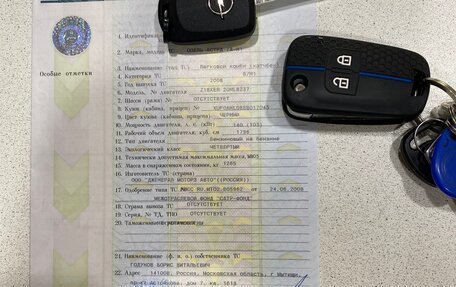 1. Идентификац
2. Марка, модель ТС ОПЕЛЬ АСТРА (A-H)
3. Наименование (тип ТС) Легковой комби (хэтчбек)
4. Категория ТС В/M1
5. Год выпуска ТС 2008
6. Модель, № двигателя
Особые отметки
7. Шасси (рама) № ОТСУТСТВУЕТ
8. Кузов (кабина, прицеп) №
9. Цвет кузова (кабины, прицепа) ЧЕРНЫЙ
10. Мощность двигателя, л. с. (кВт) 140 (103)
11. Рабочий объем двигателя, куб. см 1796
12. Тип двигателя Бензиновый на бензине
13. Экологический класс ЧЕТВЕРТЫЙ
14. Технически допустимая максимальная масса, кг
15. Масса в снаряженном состоянии, кг 1265
16. Изготовитель ТС (страна)
ООО "ДЖЕНЕРАЛ МОТОРЗ АВТО" (РОССИЯ)
17. Одобрение типа ТС № от 24.06.2008
МЕЖОТРАСЛЕВОЙ ФОНД "САТР-ФОНД"
18. Страна вывоза ТС ОТСУТСТВУЕТ
19. Серия, № ТД, ТПО ОТСУТСТВУЕТ
20. Таможенные ограничения
21. Наименование (ф. и. о.) собственника ТС
ГОДУНОВ БОРИС ВИТАЛЬЕВИЧ
22. Адрес 141008, Россия, Московская область, г Мытищи,
дом 7, кв.